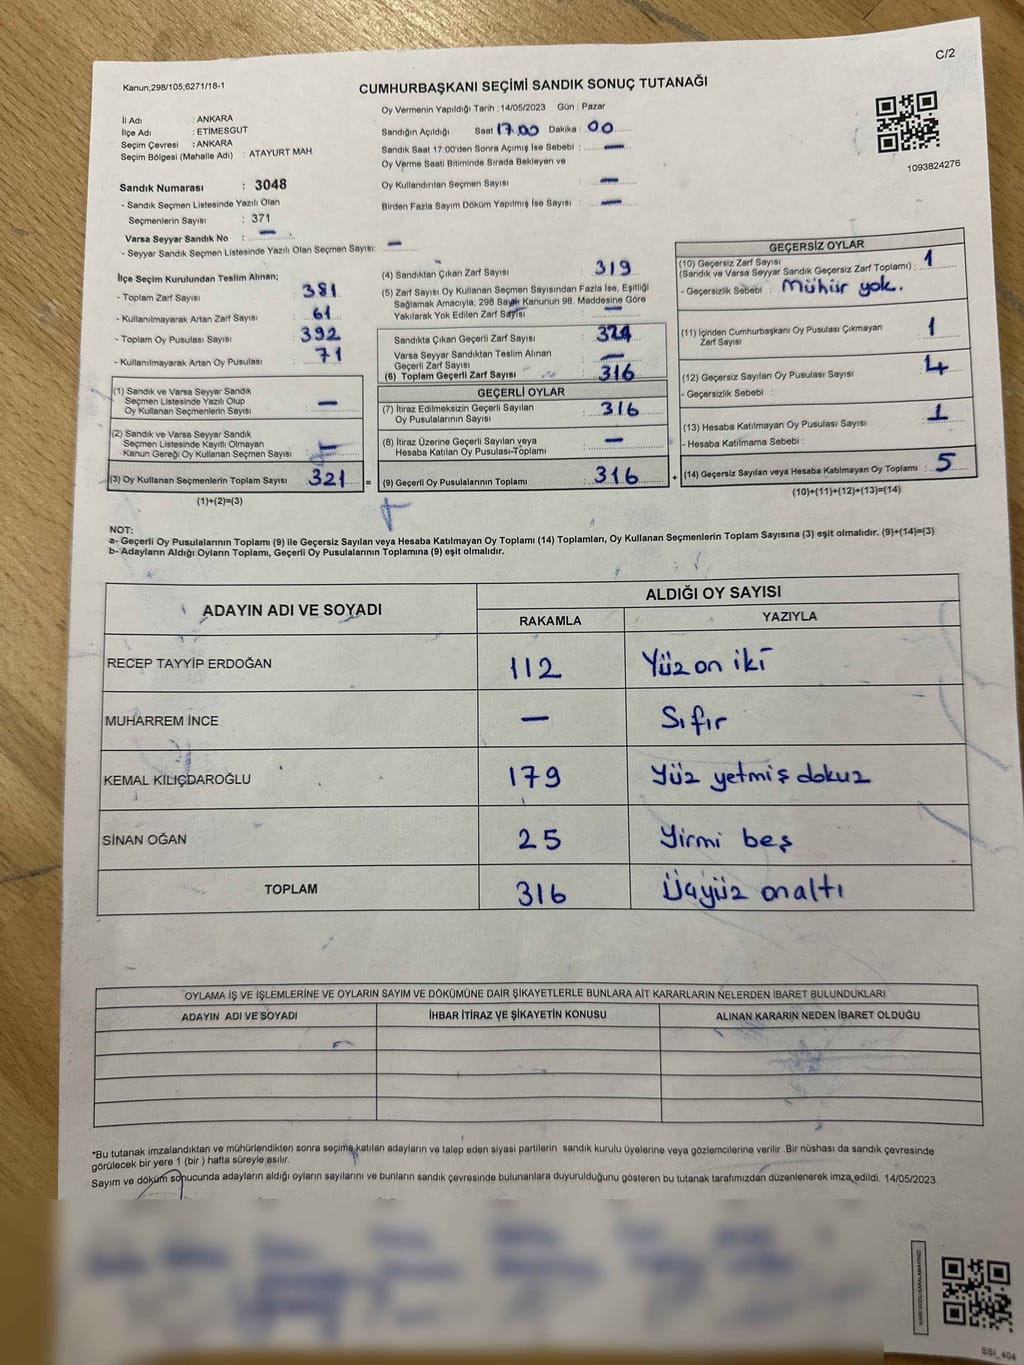 C/2
Kanun;298/105;6271/18-1
CUMHURBAŞKANI SEÇİMİ SANDIK SONUÇ TUTANAĞI
İl Adı : ANKARA
İlçe Adı : ETİMESGUT
Seçim Çevresi : ANKARA
Seçim Bölgesi (Mahalle Adı) : ATAYURT MAH.
Sandık Numarası : 3048
- Sandık Seçmen Listesinde Yazılı Olan
Seçmenlerin Sayısı : 371
Varsa Seyyar Sandık No : —
- Seyyar Sandık Seçmen Listesinde Yazılı Olan Seçmen Sayısı: —
Oy Vermenin Yapıldığı Tarih : 14/05/2023 Gün : Pazar
Sandığın Açıldığı Saat 17.00 Dakika : 00
Sandık Saat 17:00'den Sonra Açımış İse Sebebi : —
Oy Verme Saati Bitiminde Sırada Bekleyen ve
Oy Kullandırılan Seçmen Sayısı : —
Birden Fazla Sayım Döküm Yapılmış İse Sayısı : —
1093824276
İlçe Seçim Kurulundan Teslim Alınan;
- Toplam Zarf Sayısı : 381
- Kullanılmayarak Artan Zarf Sayısı : 61
- Toplam Oy Pusulası Sayısı : 392
- Kullanılmayarak Artan Oy Pusulası : 71
(1) Sandık ve Varsa Seyyar Sandık
Seçmen Listesinde Yazılı Olup
Oy Kullanan Seçmenlerin Sayısı : —
(2) Sandık ve Varsa Seyyar Sandık
Seçmen Listesinde Kayıtlı Olmayan
Kanun Gereği Oy Kullanan Seçmen Sayısı : —
(3) Oy Kullanan Seçmenlerin Toplam Sayısı : 321 =
(1)+(2)=(3)
(4) Sandıktan Çıkan Zarf Sayısı : 319
(5) Zarf Sayısı Oy Kullanan Seçmen Sayısından Fazla İse, Eşitliği
Sağlamak Amacıyla; 298 Sayılı Kanunun 98. Maddesine Göre
Yakılarak Yok Edilen Zarf Sayısı : —
Sandıkta Çıkan Geçerli Zarf Sayısı :
Varsa Seyyar Sandıktan Teslim Alınan
Geçerli Zarf Sayısı : —
(6) Toplam Geçerli Zarf Sayısı : 316
GEÇERLİ OYLAR
(7) İtiraz Edilmeksizin Geçerli Sayılan
Oy Pusulalarının Sayısı : 316
(8) İtiraz Üzerine Geçerli Sayılan veya
Hesaba Katılan Oy Pusulası Toplamı : —
(9) Geçerli Oy Pusulalarının Toplamı : 316 +
GEÇERSİZ OYLAR
(10) Geçersiz Zarf Sayısı
(Sandık ve Varsa Seyyar Sandık Geçersiz Zarf Toplamı) : 1
- Geçersizlik Sebebi : Mühür yok.
(11) İçinden Cumhurbaşkanı Oy Pusulası Çıkmayan
Zarf Sayısı : 1
(12) Geçersiz Sayılan Oy Pusulası Sayısı : 4
- Geçersizlik Sebebi :
(13) Hesaba Katılmayan Oy Pusulası Sayısı : 1
- Hesaba Katılmama Sebebi :
(14) Geçersiz Sayılan veya Hesaba Katılmayan Oy Toplamı : 5
(10)+(11)+(12)+(13)=(14)
NOT:
a- Geçerli Oy Pusulalarının Toplamı (9) ile Geçersiz Sayılan veya Hesaba Katılmayan Oy Toplamı (14) Toplamları, Oy Kullanan Seçmenlerin Toplam Sayısına (3) eşit olmalıdır. (9)+(14)=(3)
b- Adayların Aldığı Oyların Toplamı, Geçerli Oy Pusulalarının Toplamına (9) eşit olmalıdır.
ADAYIN ADI VE SOYADI
ALDIĞI OY SAYISI
RAKAMLA YAZIYLA
RECEP TAYYİP ERDOĞAN 112 Yüz on iki
MUHARREM İNCE — Sıfır
KEMAL KILIÇDAROĞLU 179 Yüz yetmiş dokuz
SİNAN OĞAN 25 Yirmi beş
TOPLAM 316 Üçyüz onaltı
OYLAMA İŞ VE İŞLEMLERİNE VE OYLARIN SAYIM VE DÖKÜMÜNE DAİR ŞİKAYETLERLE BUNLARA AİT KARARLARIN NELERDEN İBARET BULUNDUKLARI
ADAYIN ADI VE SOYADI İHBAR İTİRAZ VE ŞİKAYETİN KONUSU ALINAN KARARIN NEDEN İBARET OLDUĞU
*Bu tutanak imzalandıktan ve mühürlendikten sonra seçime katılan adayların ve talep eden siyasi partilerin sandık kurulu üyelerine veya gözlemcilerine verilir. Bir nüshası da sandık çevresinde
görülecek bir yere 1 (bir ) hafta süreyle asılır.
Sayım ve döküm sonucunda adayların aldığı oyların sayılarını ve bunların sandık çevresinde bulunanlara duyurulduğunu gösteren bu tutanak tarafımızdan düzenlenerek imza edildi. 14/05/2023
KARE KODU KARALAMAYINIZ!
SSI_404